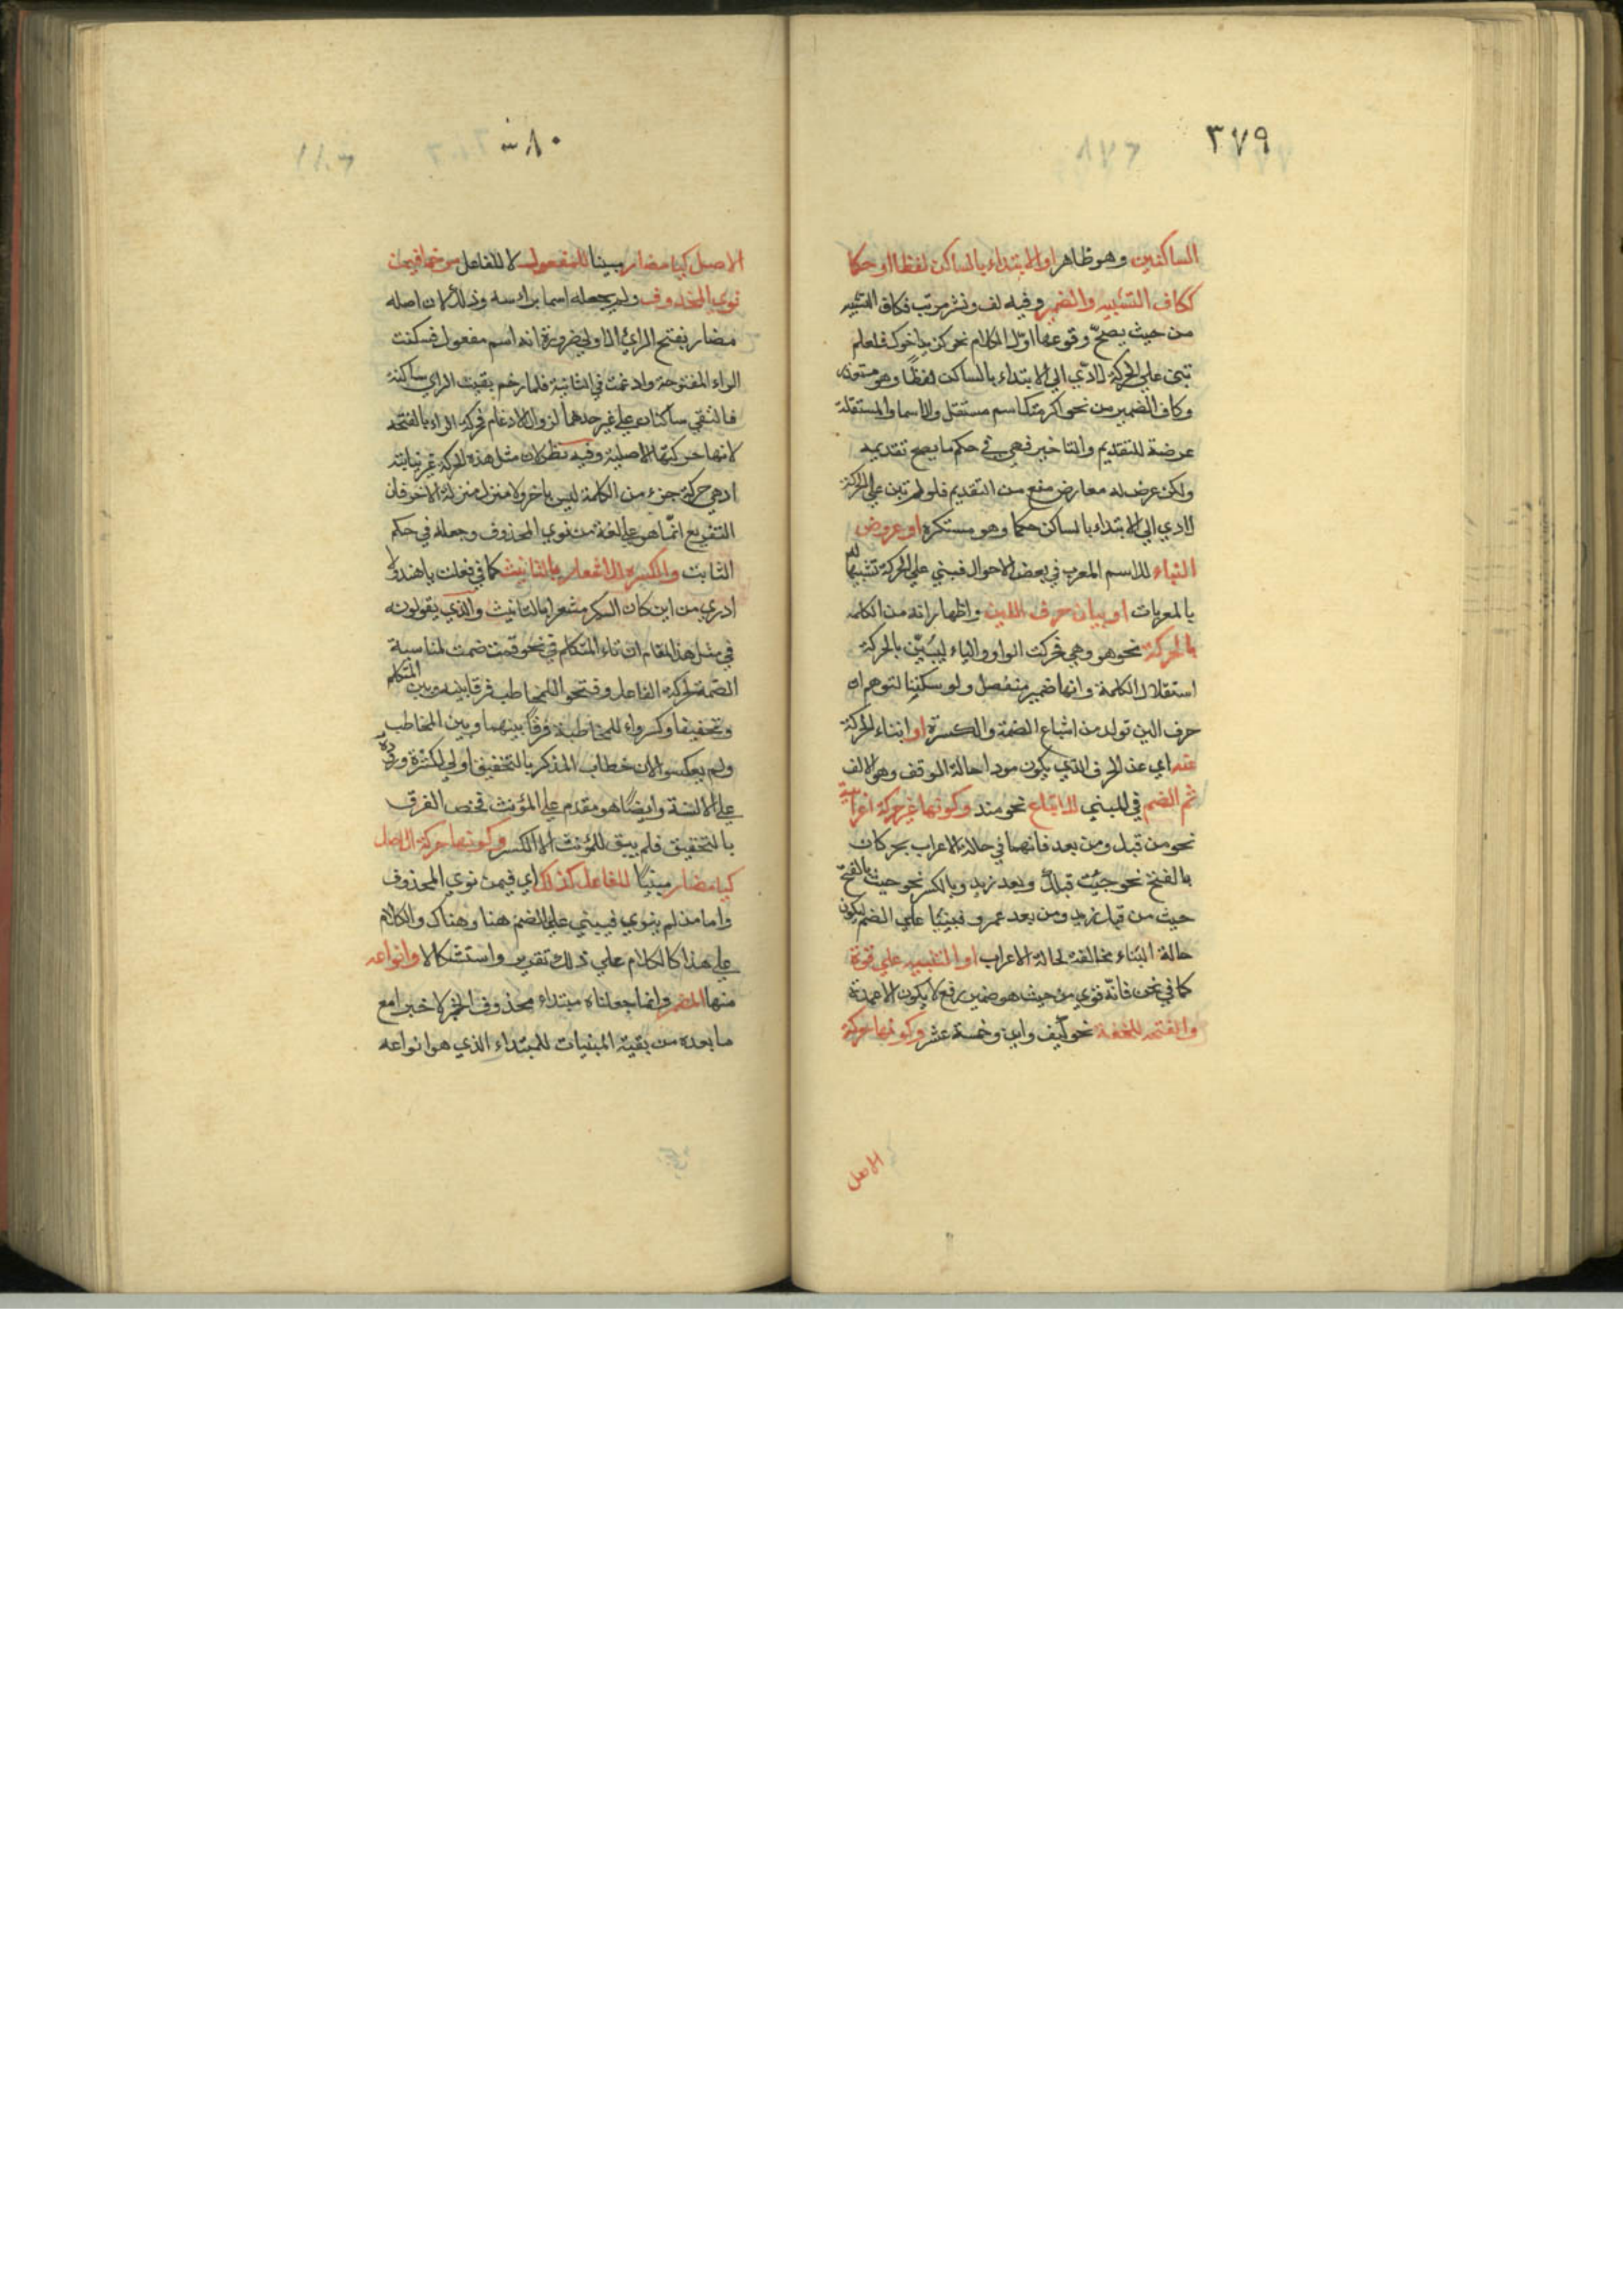 ٣٧٩
الساكنين وهو ظاهر او الابتداء بالساكن لفظا او حكما
ككاف التشبيه والضمير وفيه لف ونشر مرتب فكاف التشبيه
من حيث يصحّ وقوعها اوّل الكلام نحو كزيد اخوك فلو لم
تبن علي الحركة لادّي الي الابتداء بالساكن لفظًا وهو متعذر
وكاف الضمير من نحو اكرمتك اسم مستقل والاسما المستقلة
عرضة للتقديم والتاخير فهي في حكم ما يصح تقديمه
ولكن عرض له معارض منع من التقديم فلو لم تبن علي الحركة
لادي الي الابتداء بالساكن حكما وهو مستكره او عروض
البناء للاسم المعرب في بعض الاحوال فبني علي الحركة تشبيها له
بالمعربات او بيان حرف اللين واظهار انه من الكلمة
بالحركة نحو هو وهي فحركت الواو والياء ليبيّن بالحركة
استقلال الكلمة وانها ضمير منفصل ولو سكنتا لتوهم انه
حرف لين تولد من اشباع الضمة والكسرة او انباء الحركة
عنه اي عن الحرف الذي يكون موداه حالة الوقف وهو الالف
ثم الضم في المبني للاتباع نحو منذ وكونها غير حركة اعرابية
نحو من قبل ومن بعد فانهما في حالة الاعراب يحركان
بالفتح نحو جئت قبلك وبعد زيد وبالكسر نحو حيث بالفتح
حيث من قبل زيد ومن بعد عمرو فبنيتا علي الضم ليكون
حالة البناء مخالفة لحالة الاعراب او التنبيه علي قوة
كما في نحن فانّه قوي من حيث هو ضمير رفع لا يكون الا عمدة
والفتحة للخفة نحو كيف واين وخمسة عشر وكونها حركة
الاصل
٣٨٠
الاصل كيا مضار مبينا للمفعول لا للفاعل مرخما فيمن
نوي المحذوف ولم يجعله اسما براسه وذلك لان اصله
مضار بفتح الراي الاولي ضرورة انه اسم مفعول فسكنت
الراء المفتوحة وادغمت في الثانية فلما رخم بقيت الراي ساكنة
فالتقي ساكنان علي غير حدهما لزوال الادغام فحركة الراء بالفتحة
لانها حركتها الاصلية وفيه نظر لان مثل هذه الحركة غير بنائية
اذ هي حركة جزء من الكلمة ليس باخر ولا منزل منزلة الاخر فان
التفريع انّما هو علي لغة من نوي المحذوف وجعله في حكم
الثابت والكسرة للاشعار بالتانيث كما في فعلت يا هند ولا
ادري من اين كان الكسر مشعرا بالتانيث والذي يقولونه
في مثل هذا المقام ان تاء المتكلم في نحو قمت ضمت لمناسبة
الضمة لحركة الفاعل وفتحو اللمخاطب فرقا بينه وبين المتكلم
وتخفيفا وكسرواء للمخاطبة فرقًا بينهما وبين المخاطب
ولم يعكسوا لان خطاب المذكر بالتخفيف اولي لكثرة وروده
علي الالسنة وايضًا هو مقدم علي المؤنث فخص الفرق
بالتخفيف فلم يبق للمؤنث الا الكسر وكونها حركة الاصل
كيا مضار مبنيًا للفاعل كذلك اي فيمن نوي المحذوف
واما من لم ينوي فيبني علي الضم هنا وهناك والكلام
علي هذا كالكلام علي ذلك تقرير واستشكالا وانواعه
منها المضمر وانما جعلناه مبتداء محذوف الخبر لا خبر امع
ما بعده من بقية المبنيات للمبتداء الذي هو انواعه